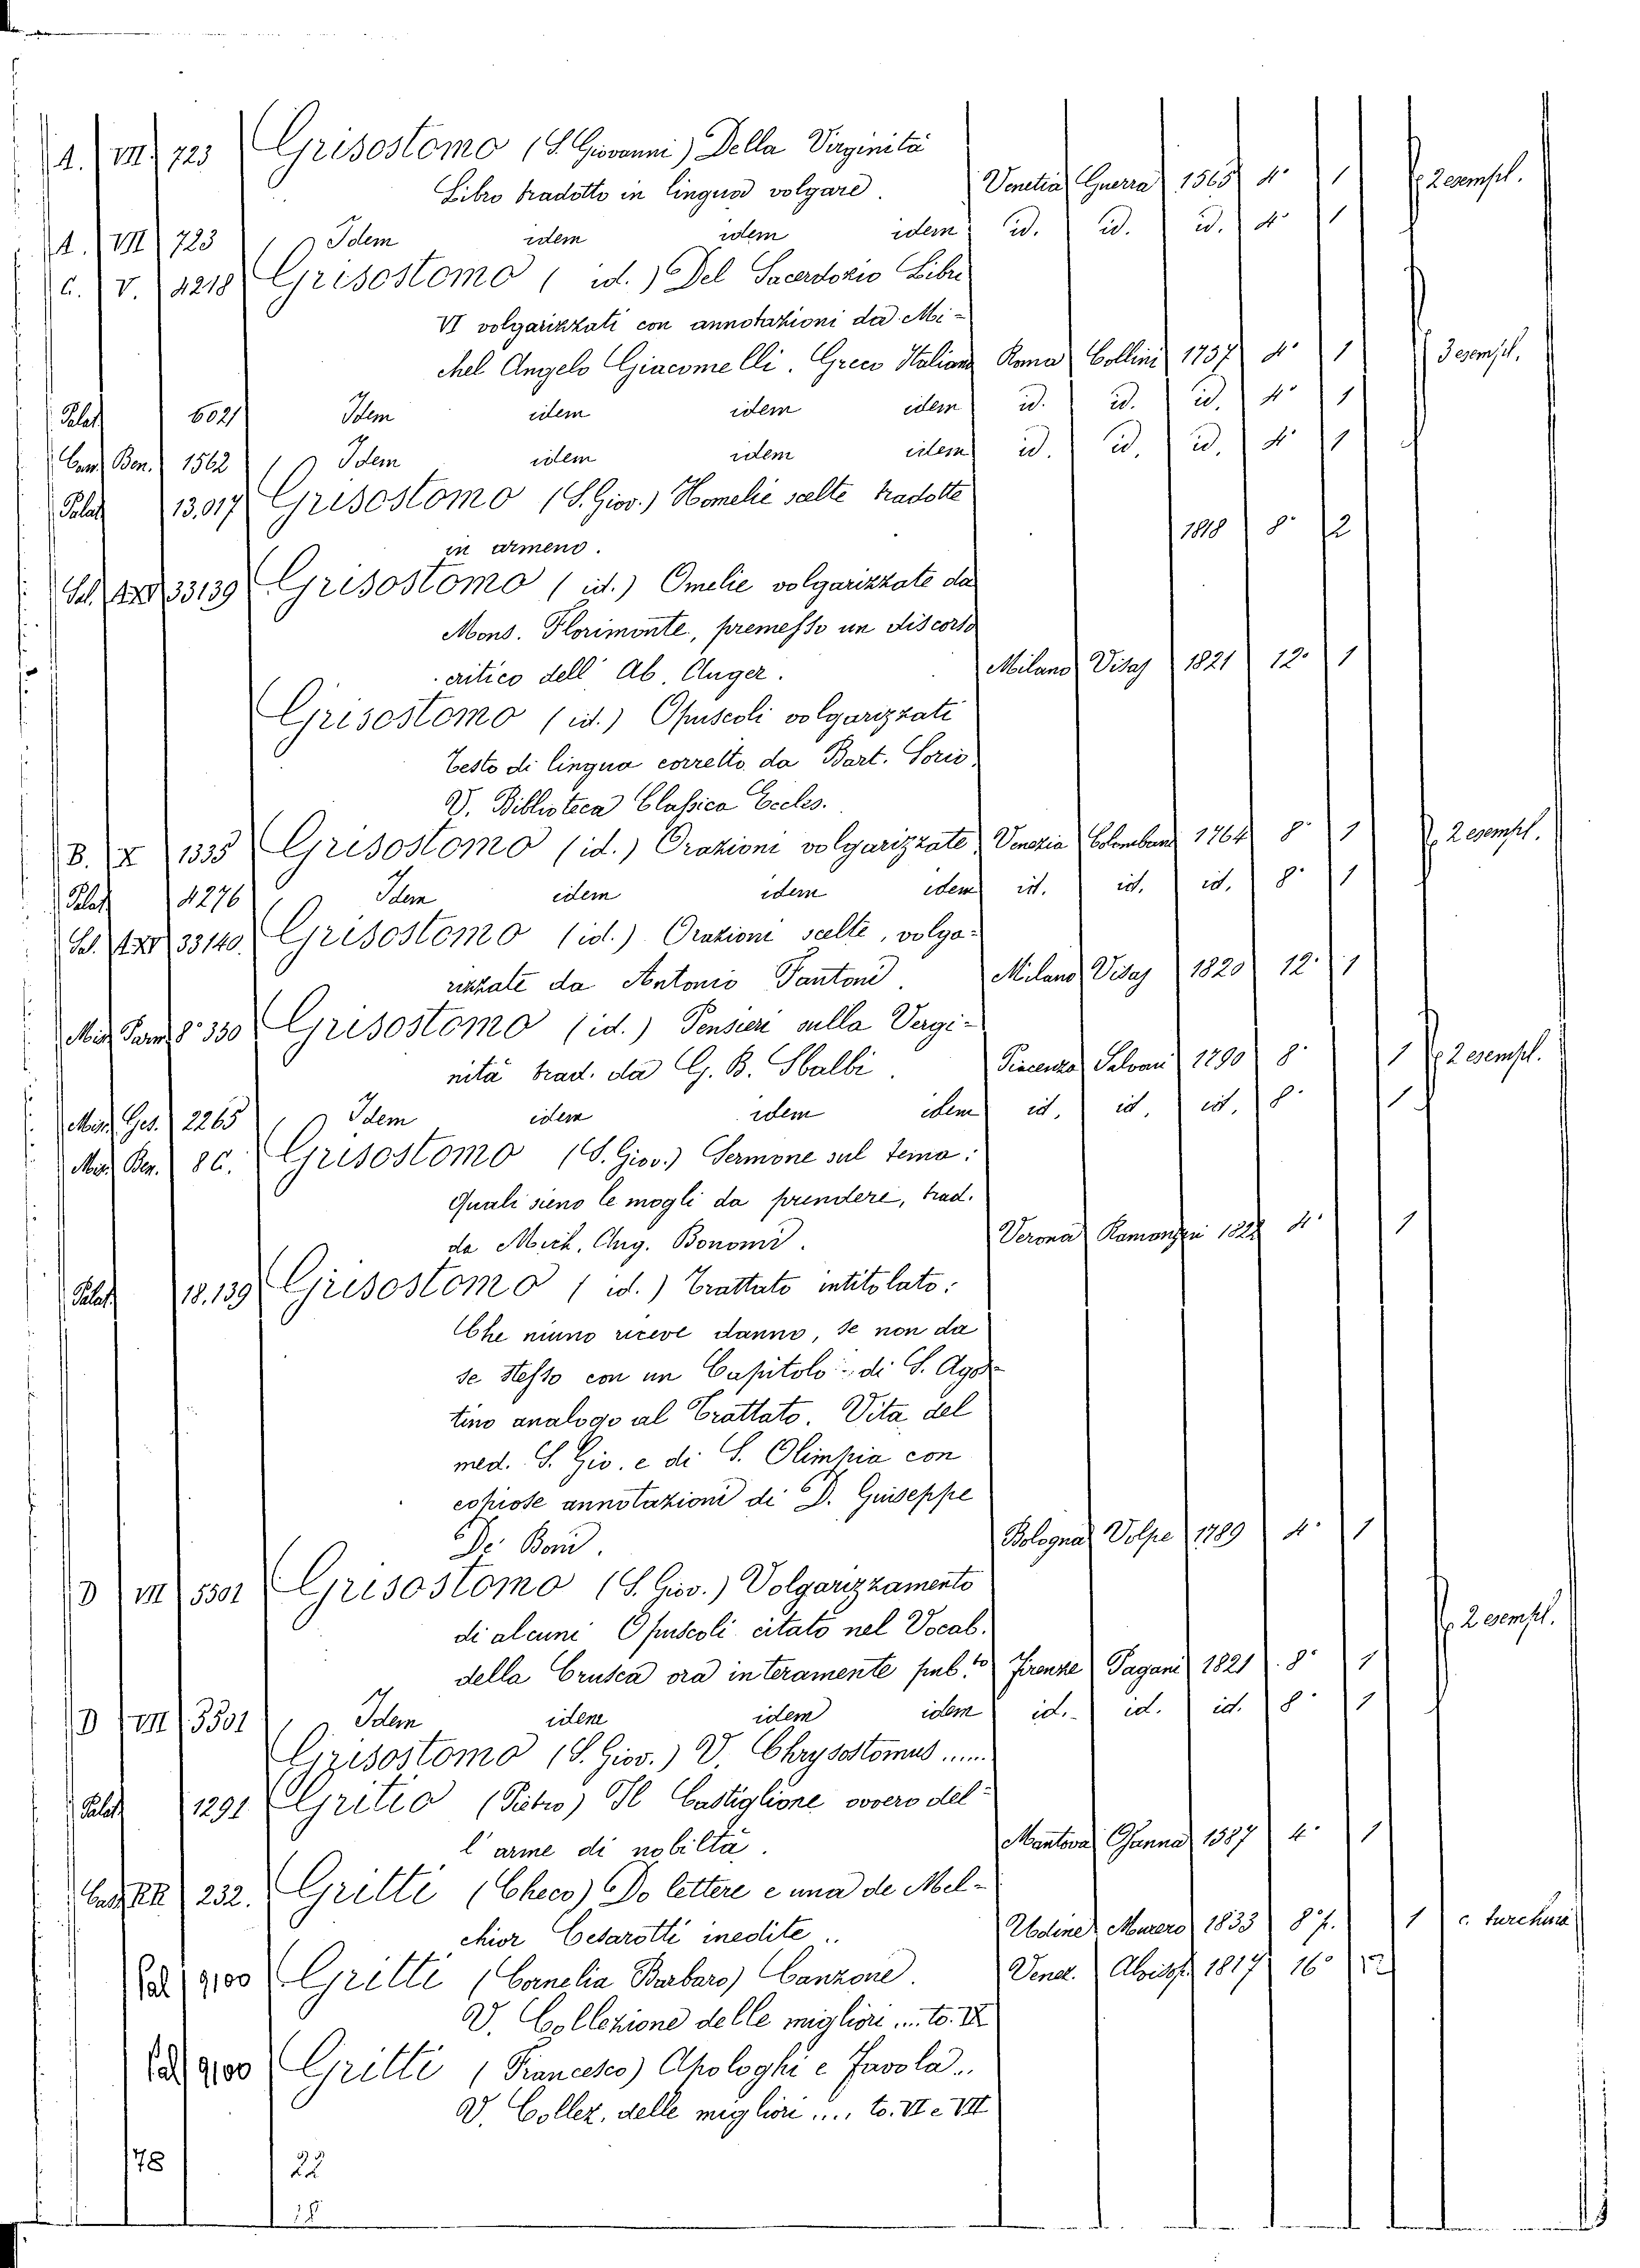 A. VII 723 Grisostomo (S. Giovanni) Della Virginità
Libro tradotto in lingua volgare. Venetia Guerra 1565 4° 1 2 esempl.
A. VII 723 Idem idem idem idem id. id. id. 4° 1
C. V. 4218 Grisostomo ( id. ) Del Sacerdozio Libri
VI volgarizzati con annotazioni da Mi-
chel Angelo Giacomelli. Greco Italiano Roma Collini 1757 4° 1 3 esempl.
Palat 6021 Idem idem idem idem id. id. id. 4° 1
Cam. Ben. 1562 Idem idem idem idem id. id. id. 4° 1
Palat 13,017 Grisostomo (S. Giov.) Homelie scelte tradotte
in armeno. 1818 8° 2
33139 Grisostomo ( id. ) Omelie volgarizzate da
Mons. Florimonte, premesso un discorso
critico dell' Ab. Auger. Milano Visaj 1821 12° 1
Grisostomo (id.) Opuscoli volgarizzati
testo di lingua corretto da Bart. Sorio.
V. Biblioteca Classica Eccles.
B. X 1335 Grisostomo (id.) Orazioni volgarizzate Venezia Colombani 1764 8° 1 2 esempl.
Palat 4276 Idem idem idem idem id. id. id. 8° 1
33140. Grisostomo (id.) Orazioni scelte, volga-
rizzate da Antonio Fantoni. Milano Visaj 1820 12° 1
8° 330 Grisostomo (id.) Pensieri sulla Vergi-
nità trad. da G. B. Sbalbi. Piacenza Salvoni 1790 8° 1 2 esempl.
Ges. 2265 Idem idem idem idem id. id. id. 8° 1
Ben. 86. Grisostomo (S. Giov.) Sermone sul tema:
Quali sieno le mogli da prendere, trad.
da Mich. Ang. Bonomi. Verona Ramanzini 4° 1
Palat 18.139 Grisostomo ( id. ) Trattato intitolato:
Che niuno riceve danno, se non da
se stesso con un Capitolo di S. Agos-
tino analogo al Trattato. Vita del
med. S. Gio. e di S. Olimpia con
copiose annotazioni di D. Giuseppe
De Boni. Bologna Volpe 1789 4° 1
D VII 5501 Grisostomo (S. Giov.) Volgarizzamento
di alcuni Opuscoli citato nel Vocab. 2 esempl.
della Crusca ora interamente pub.to Firenze Pagani 1821 8° 1
D VII 3501 Idem idem idem idem id. id. id. 8° 1
Grisostomo (S. Giov.) V. Chrysostomus .....
Palat 1291 Gritio (Pietro) Il Castiglione ovvero del-
l'arme di nobiltà. Mantova Osanna 1587 4° 1
232. Gritti (Checo) Do lettere e una de Mel-
chior Cesarotti inedite.. Udine Murero 1833 8° f. 1 c. turchina
Pal 9,100 Gritti (Cornelia Barbaro) Canzone. Venez. Alvisop. 1817 16°
V. Collezione delle migliori ... to. IX
Pal 9,100 Gritti (Francesco) Apologhi e Favola..
V. Collez. delle migliori .... to. VI e VII
78 22
18